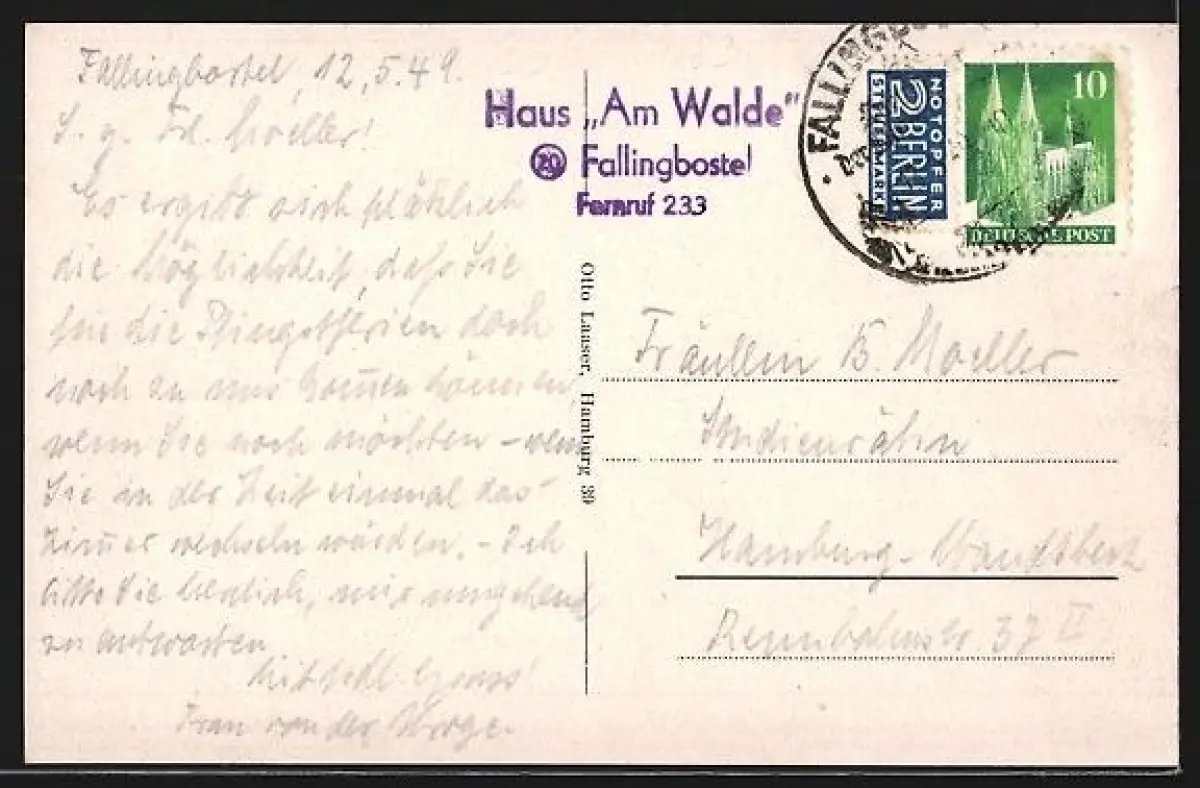 Fallingbostel, 12.5.49.
S. g. Frl. Moeller!
Es ergibt sich plötzlich
die Möglichkeit, daß Sie
für die Pfingstferien doch
noch zu uns kommen können,
wenn Sie noch möchten – wenn
Sie in der Zeit einmal das
Zimmer wechseln würden. – Ich
bitte Sie herzlich, mir umgehend
zu antworten
Mit Gruss!
Frau von der
Haus „Am Walde"
20 Fallingbostel
Fernruf 233
Otto Laaser, Hamburg 39
FALLINGBOSTEL
NOTOPFER
2 BERLIN
STEUERMARKE
10
DEUTSCHE POST
Fräulein B. Moeller
Studienrätin
Hamburg-Wandsbek
37 II